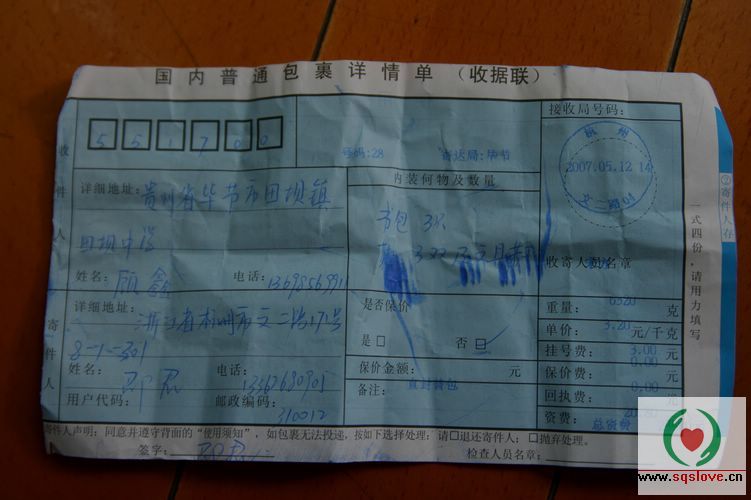 国内普通包裹详情单（收据联）
接收局号码：
551700
号码:28 寄达局:毕节
收件人
详细地址：贵州省毕节市田坝镇
田坝中学
姓名：顾鑫 电话：
内装何物及数量
书包
杭州
2007.05.12 14
文二路01
收寄人员名章
②寄件人存
一式四份，请用力填写
寄件人
详细地址：浙江省杭州市文二路171号
8-1-301
姓名： 电话：
用户代码： 邮政编码：310012
是否保价
是□ 否☑
保价金额： 元
备注：
重量： 克
单价：3.20元/千克
挂号费：3.00元
保价费：0.00元
回执费：0.00元
资费： 元
总资费
寄件人声明：同意并遵守背面的“使用须知”，如包裹无法投递，按如下选择处理：请□退还寄件人；□抛弃处理。
签字： 检查人员名章：
www.sqslove.cn